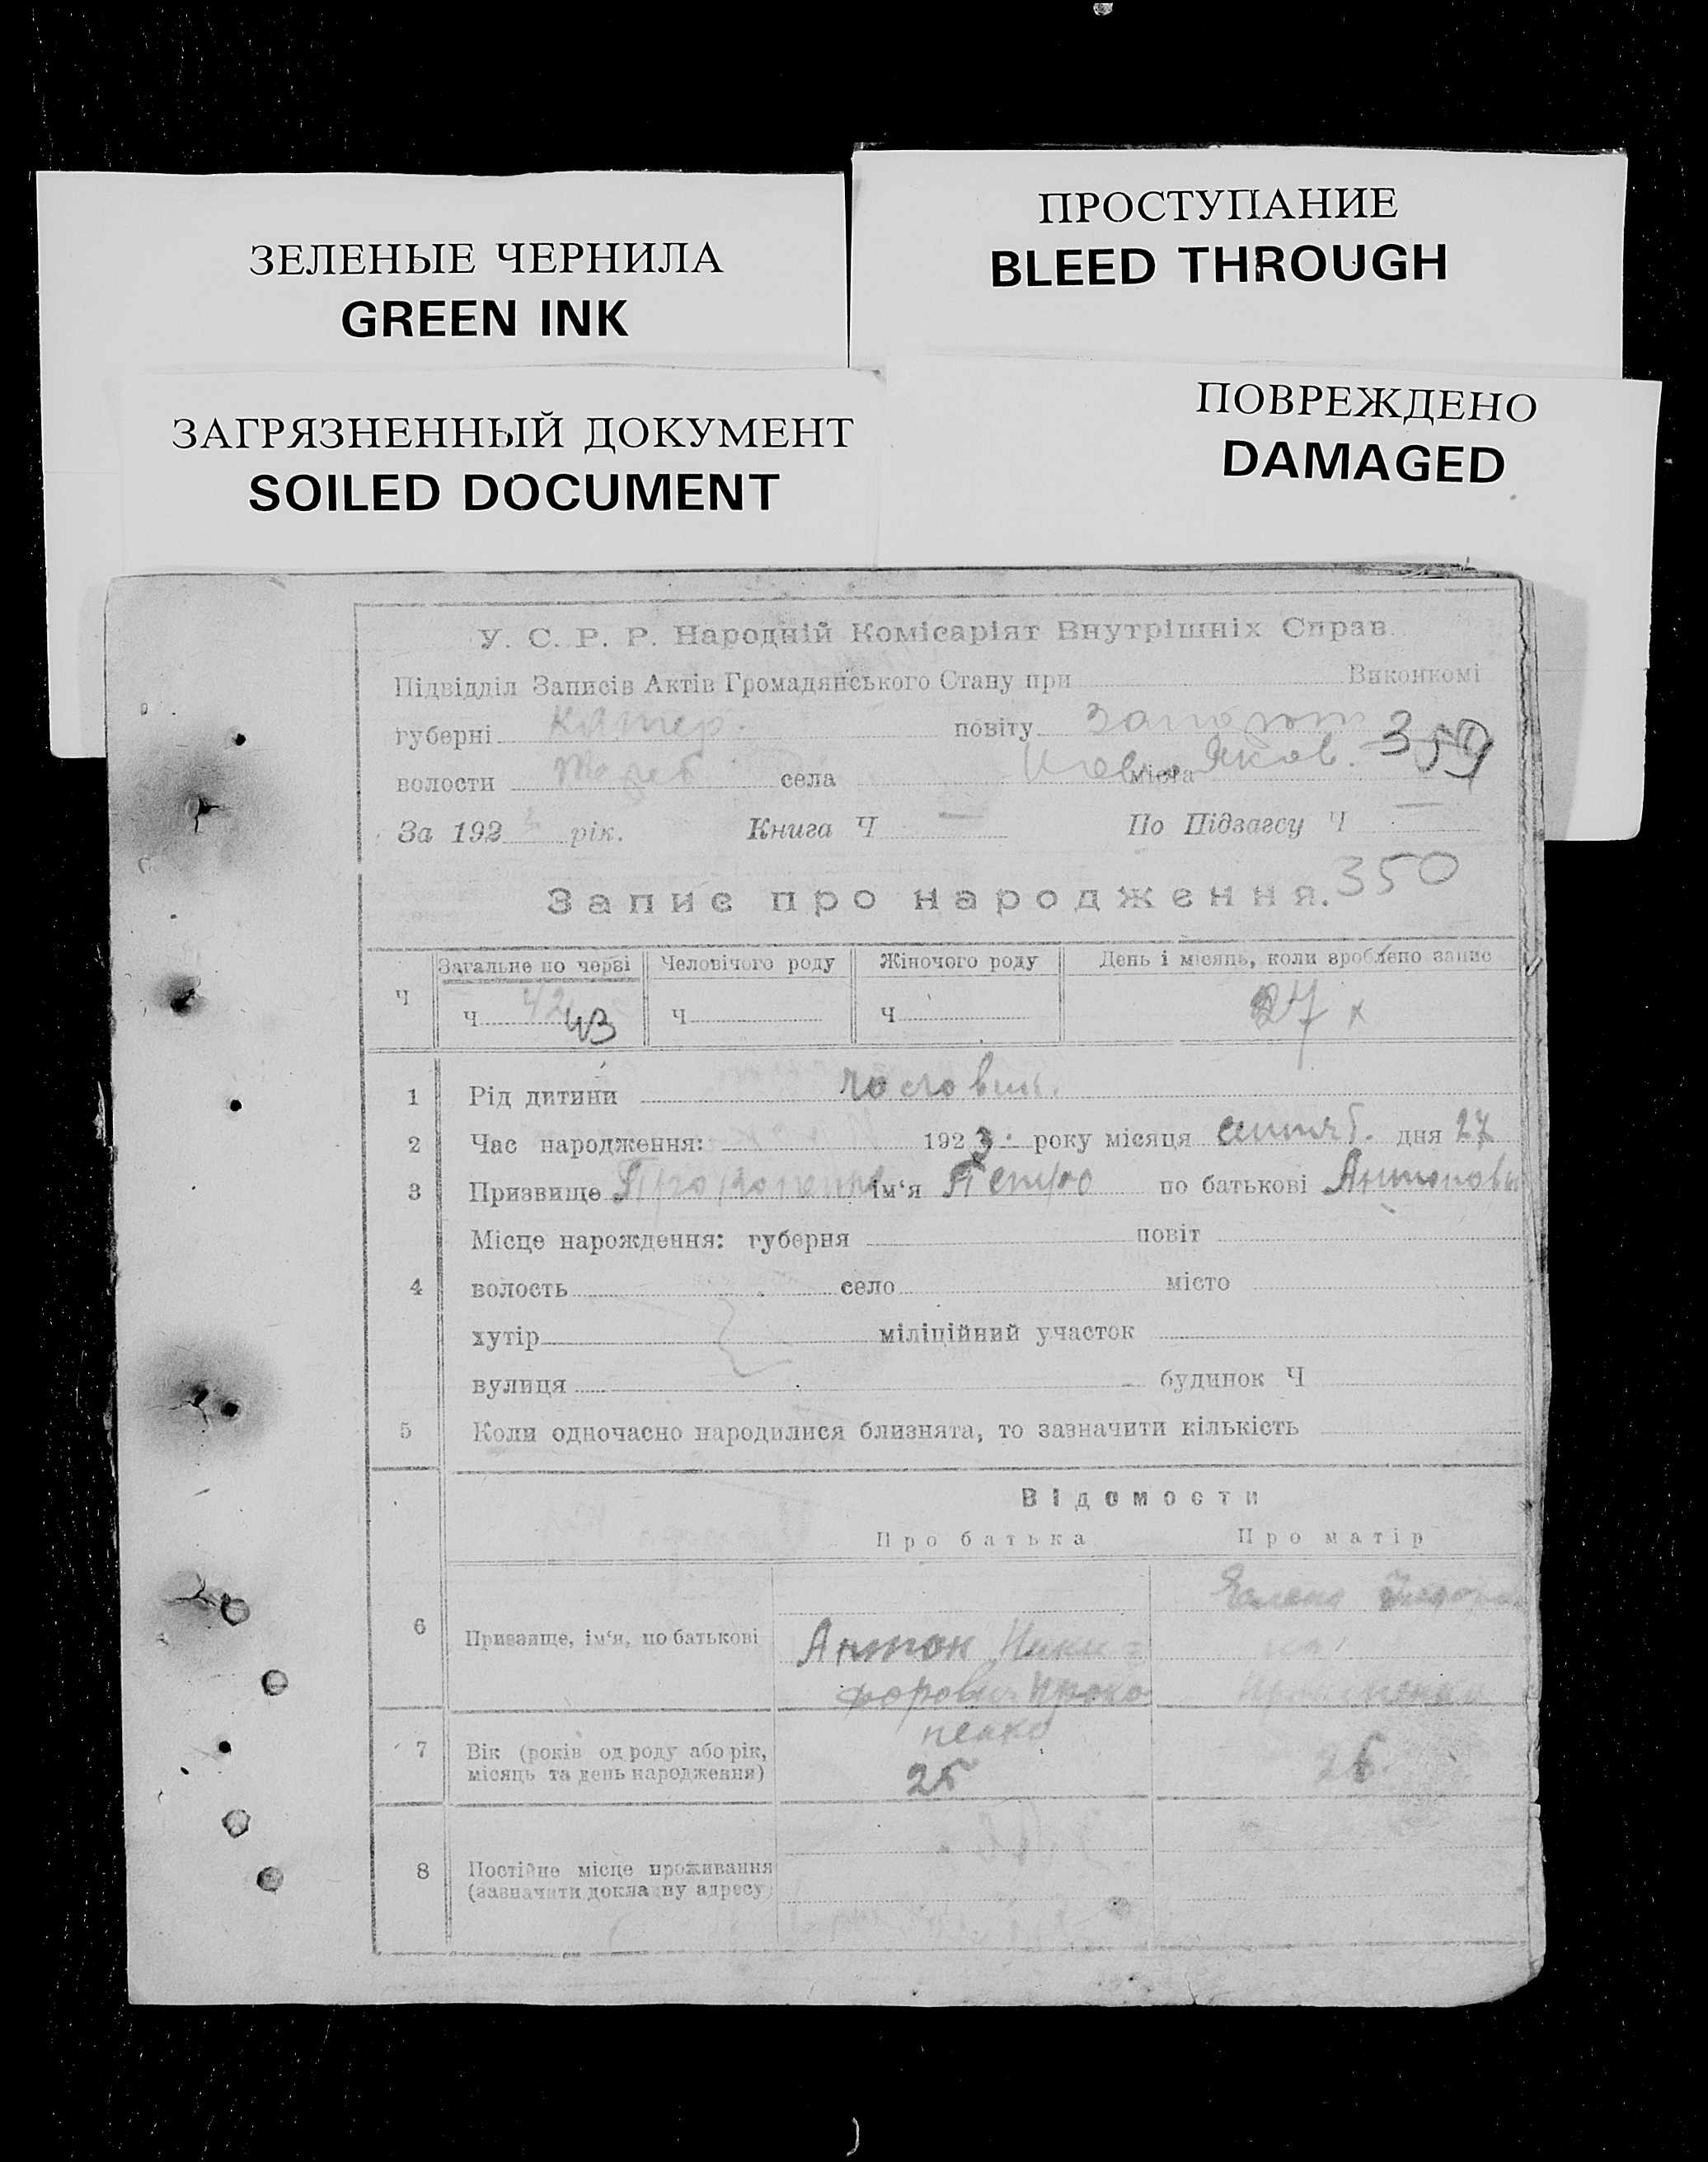 ЗЕЛЕНЫЕ ЧЕРНИЛА
GREEN INK
ПРОСТУПАНИЕ
BLEED THROUGH
ЗАГРЯЗНЕННЫЙ ДОКУМЕНТ
SOILED DOCUMENT
ПОВРЕЖДЕНО
DAMAGED
У. С. Р. Р. Народній Комісаріят Внутрішніх Справ
Підвідділ Записів Актів Громадянського Стану при Виконкомі
губерні Катер. повіту 359
волости села міста
За 192 рік. Книга Ч — По Підзагсу Ч —
Запис про народження. 350
Ч Загальне по черзі Человічого роду Жіночого роду День і місяць, коли зроблено запис
Ч 42 43 Ч Ч 27 х
1 Рід дитини
2 Час народження: 1923. року місяця сентяб. дня 27
3 Призвище Прокопенко ім'я Петро по батькові Антонови
Місце нарождення: губерня повіт
4 волость село місто
хутір міліційний участок
вулиця будинок Ч
5 Коли одночасно народилися близнята, то зазначити кількість
Відомости
Про батька Про матір
6 Призвище, ім'я, по батькові Антон Ники=
форович Проко
пенко
Елена
Прокопенко
7 Вік (років од роду або рік, місяць та день народження) 25
8 Постійне місце проживання
(зазначити докладну адресу)